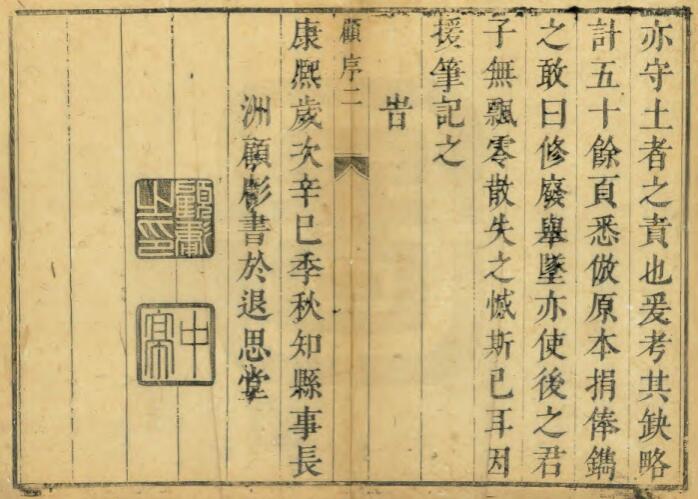 亦守土者之責也爰考其缺略
計五十餘頁悉倣原本捐俸鐫
之敢曰修廢舉墜亦使後之君
子無飄零散失之憾斯已耳因
援筆記之
旹
顧序二
康熙歲次辛巳季秋知縣事長
洲顧彪書於退思堂
顧彪之印